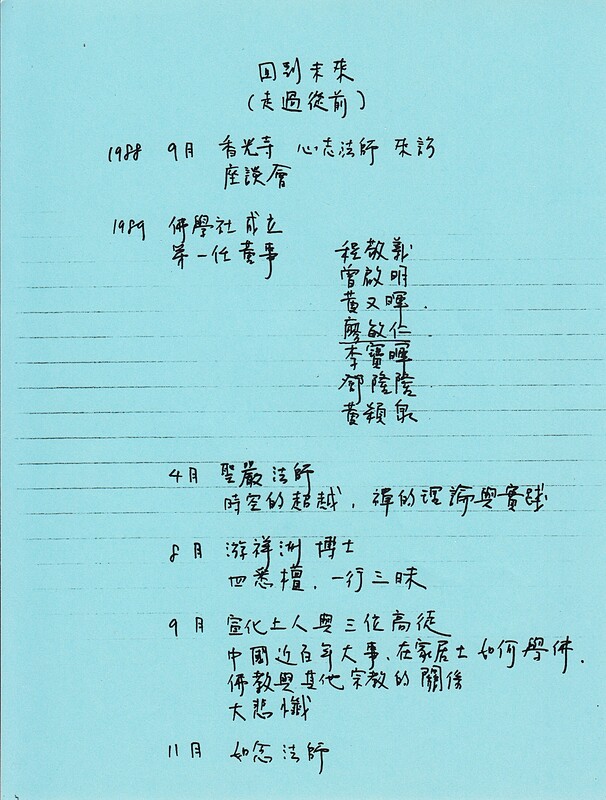 回到未來
(走過從前)
1988 9月 香光寺 心志法師 來訪
座談會
1989 佛學社成立
第一任董事
程敬義
曾啟明
黃又暉
廖敏仁
李寶暉
鄧隆隆
黃穎泉
4月 聖嚴法師
時空的超越, 禪的理論與實踐
8月 游祥洲 博士
四悉檀, 一行三昧
9月 宣化上人與三位高徒
中國近百年大事、在家居士如何學佛.
佛教與其他宗教的關係
大悲懺
11月 如念法師